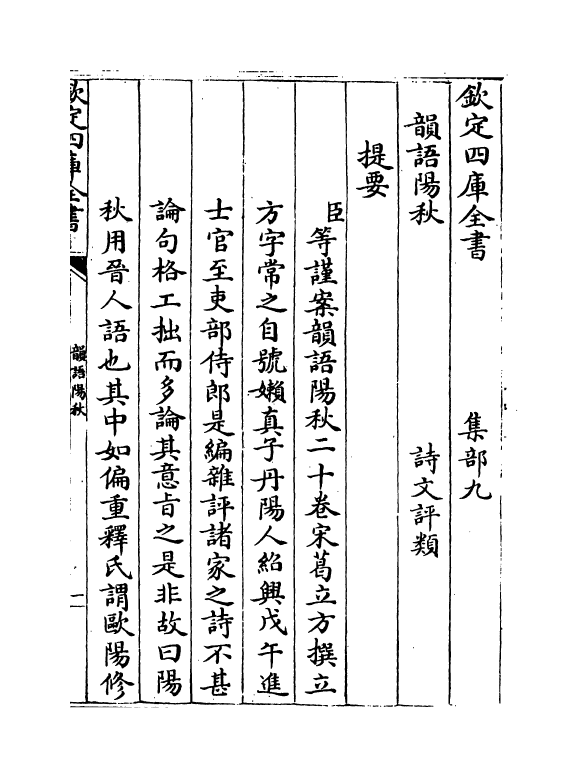 欽定四庫全書　集部九
韻語陽秋　詩文評類
提要
臣等謹案韻語陽秋二十卷宋葛立方撰立
方字常之自號嬾真子丹陽人紹興戊午進
士官至吏部侍郎是編雜評諸家之詩不甚
論句格工拙而多論其意旨之是非故曰陽
秋用晉人語也其中如偏重釋氏謂歐陽修
欽定四庫全書
韻語陽秋